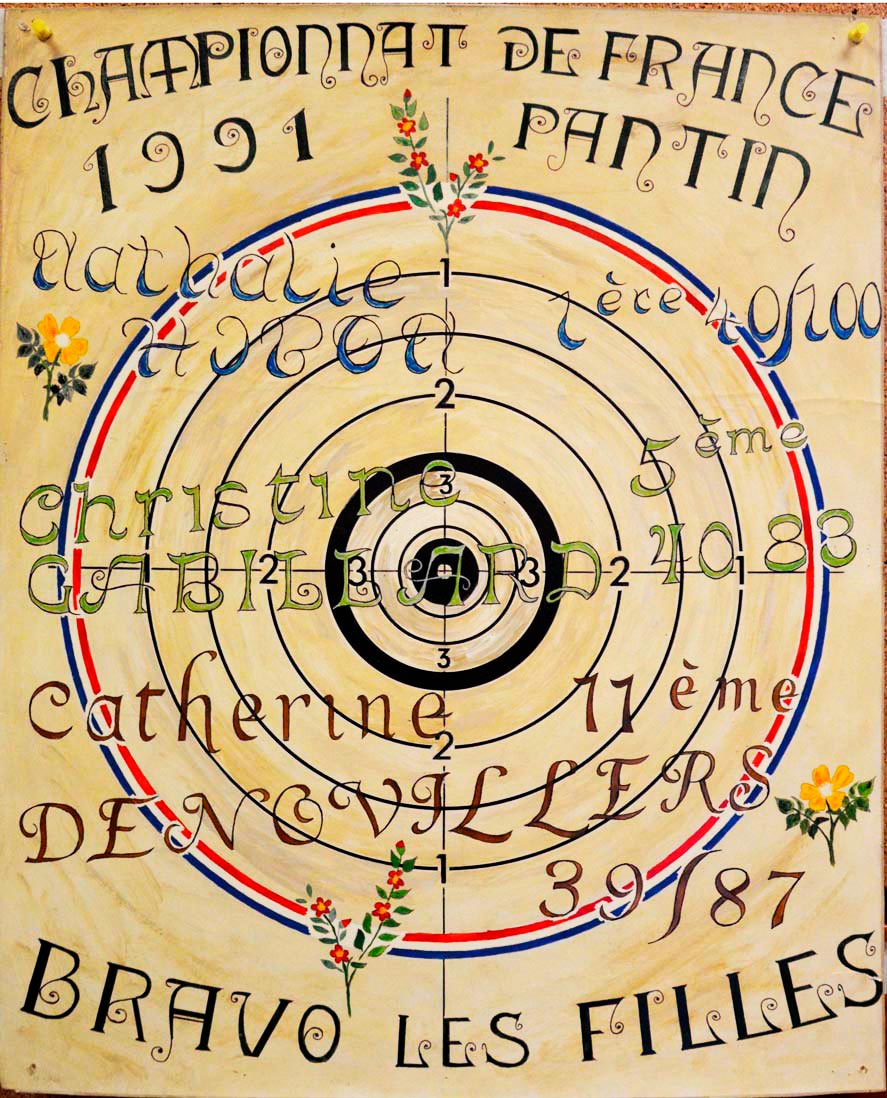 CHAMPIONNAT DE FRANCE
1991 PANTIN
Nathalie 1ère 40/100
1
2
Christine 5ème
3
GABILLARD 40 83
1 2 3 3 2 1
3
Catherine 11ème
2
DENOVILLERS
1
39/87
BRAVO LES FILLES